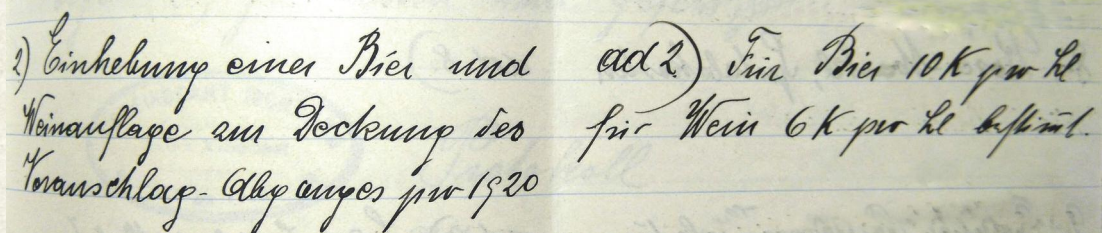 2) Einhebung einer Bier und
Weinauflage zur Deckung des
Voranschlag-Abganges pro 1920
ad 2.) Für Bier 10 K pro hl
für Wein 6 K pro hl bestimmt.